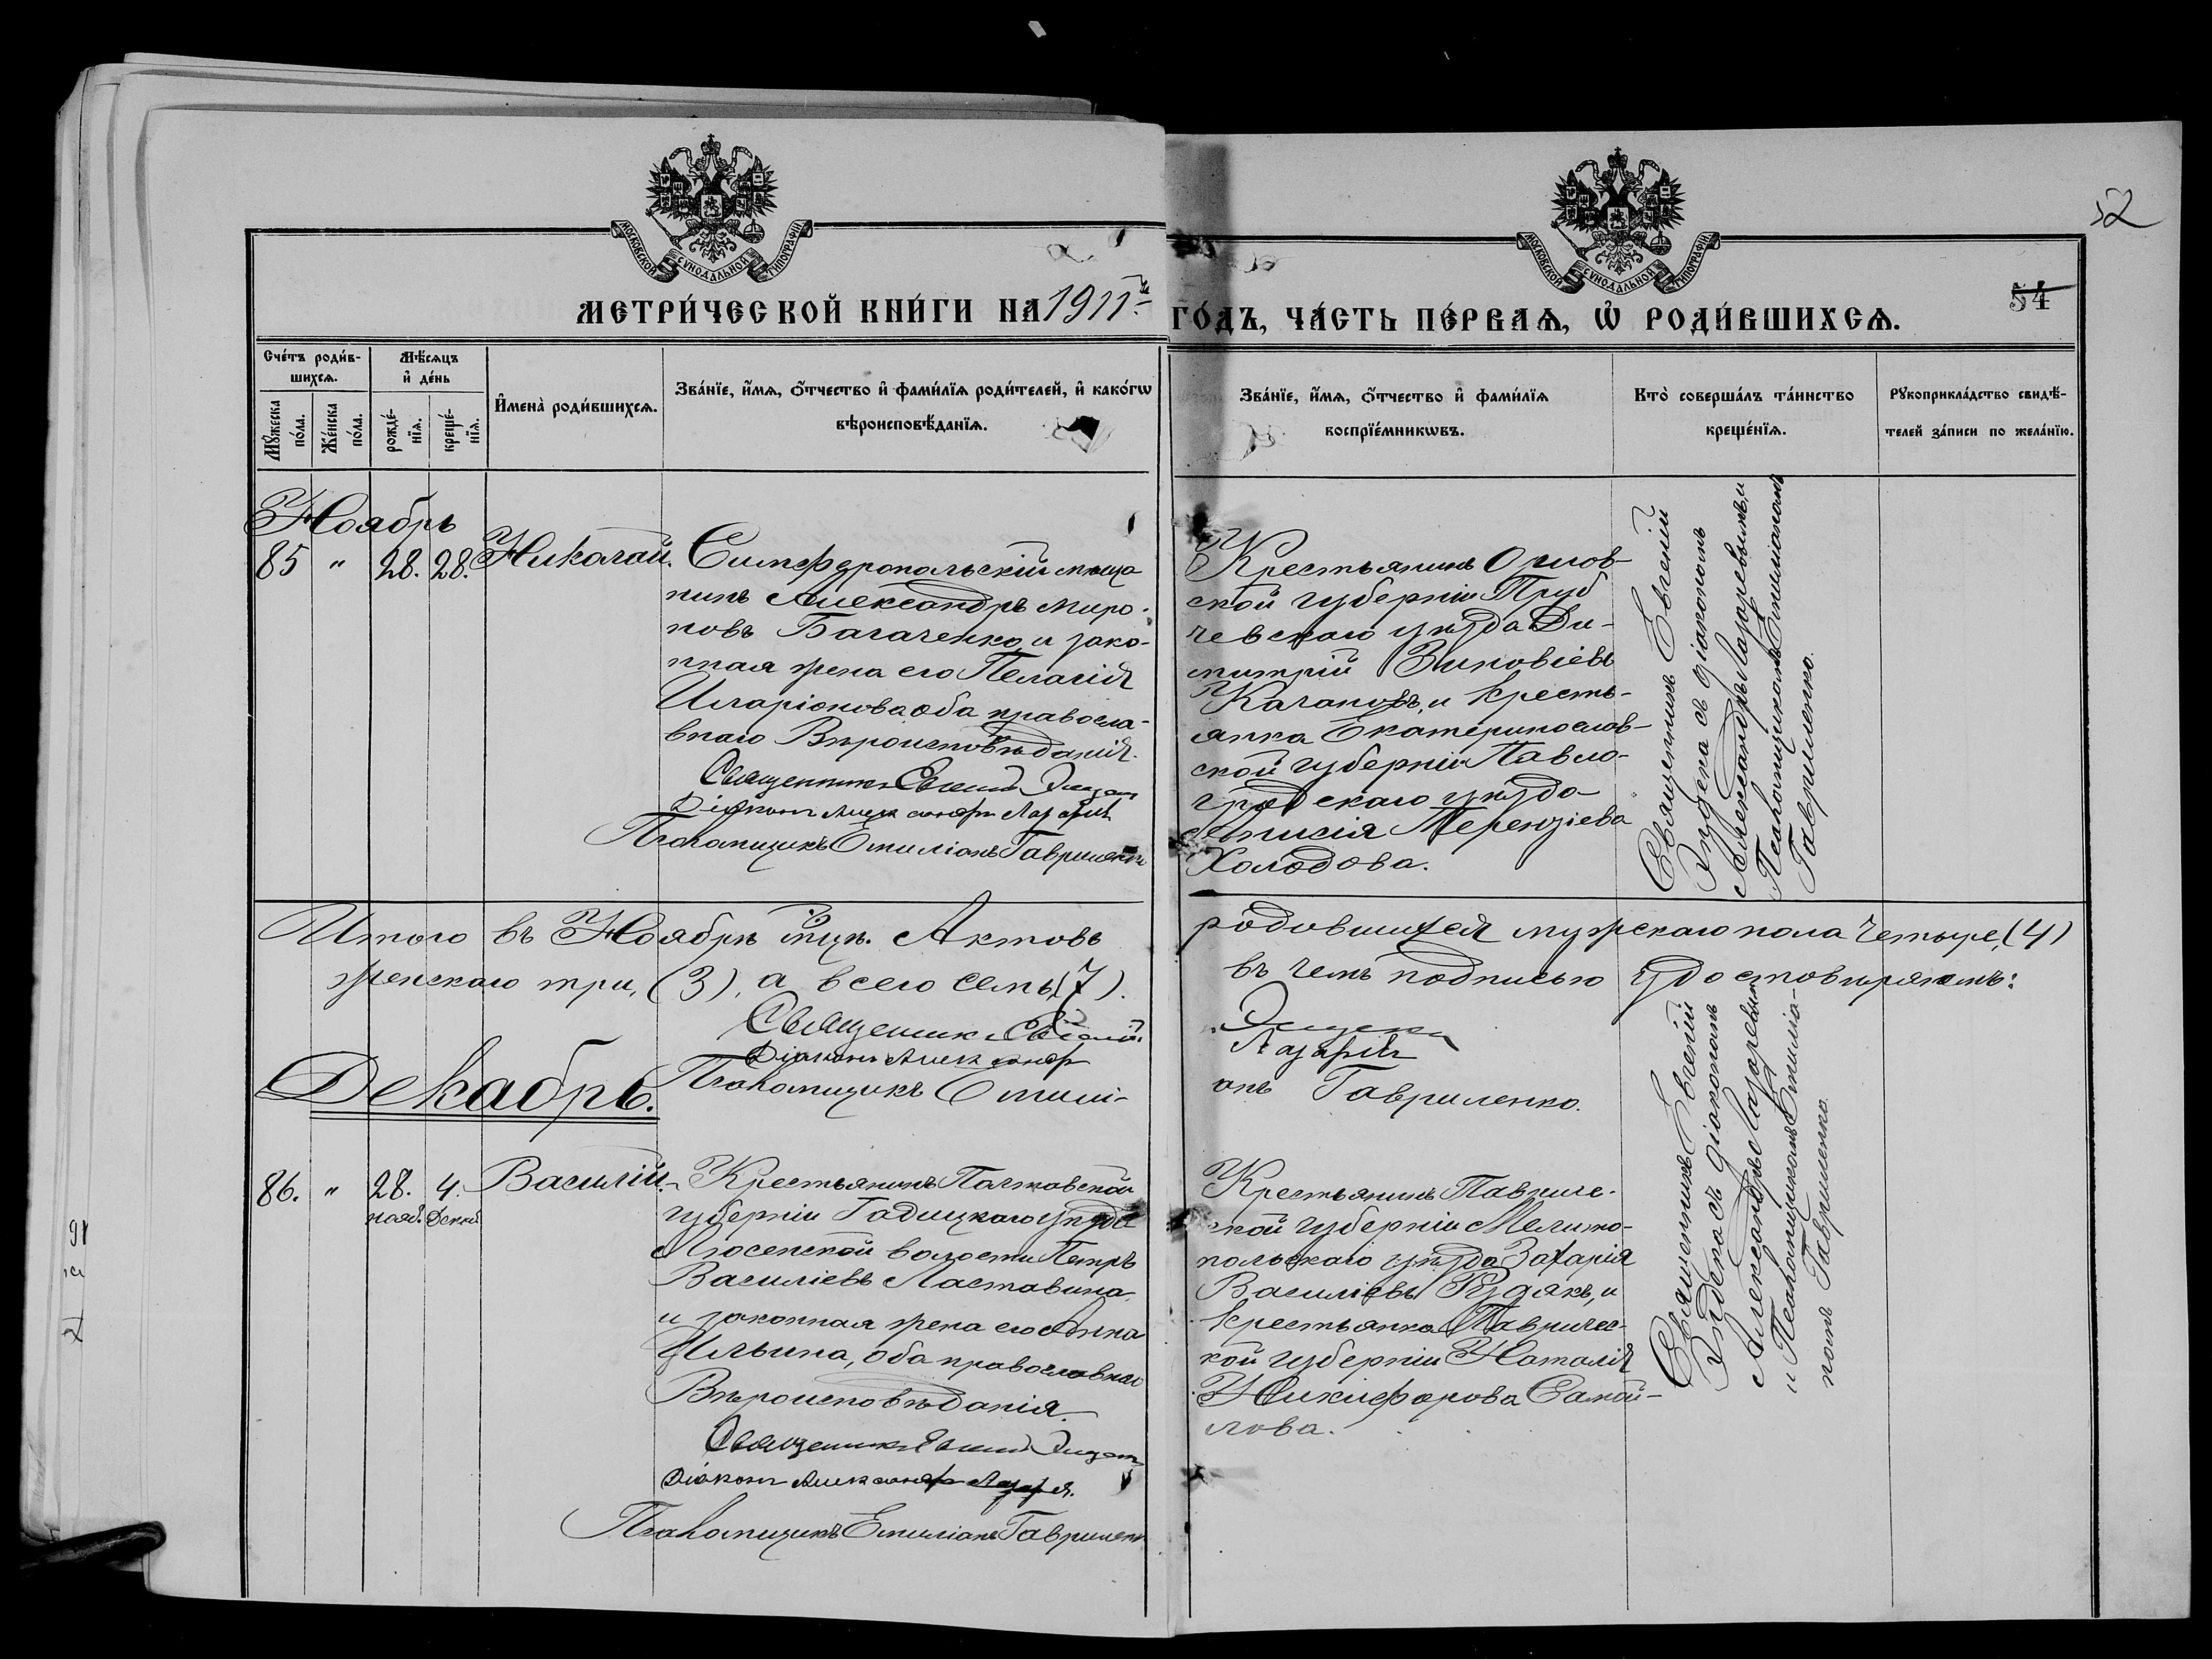 52
54
МОСКОВСКОЙ СѴНОДАЛЬНОЙ ТИПОГРАФІИ
МОСКОВСКОЙ СѴНОДАЛЬНОЙ ТИПОГРАФІИ
МЕТРИ́ЧЕСКОЙ КНИ́ГИ НА 1911й ГО́ДЪ, ЧА́СТЬ ПЕ́РВАѦ, Ѡ҆ РОДИ́ВШИХСѦ.
Сче́тъ роди́в-
шихсѧ.
Мꙋ́жеска по́ла.
Же́нска по́ла.
Мѣ́сѧцъ
и҆ де́нь
рожде́-
нїѧ.
креще́-
нїѧ.
И҆мена̀ роди́вшихсѧ.
Зва́нїе, и҆́мѧ, ѻ҆́тчество и҆ фами́лїѧ роди́телей, и҆ како́гѡ
вѣроисповѣ́данїѧ.
Зва́нїе, и҆́мѧ, ѻ҆́тчество и҆ фами́лїѧ
воспрїе́мникѡвъ.
Кто̀ соверша́лъ та́инство
креще́нїѧ.
Рꙋкоприкла́дство свидѣ́-
телей за́писи по жела́нїю.
Ноябрь
85 " 28. 28. Николай.
Симферопольскій мѣща
нинъ Александръ Миро-
новъ Багаченко, и зако-
нная жена его Пелагія
Иларіонова, оба правосла-
внаго Вѣроисповѣданія.
Священникъ Евгеній
Діаконъ Александръ Лазаревъ
Псаломщикъ Емиліанъ Гавриленко
Крестьянинъ Орлов-
ской губерніи Труб
чевскаго уѣзда Ди-
митрій Зиновіевъ
Качановъ, и кресть-
янка Екатеринослав-
ской губерніи Павло-
градскаго уѣзда
Терентіева
Холодова.
Священникъ Евгеній
съ діакономъ
Александръ Лазаревымъ, и
Псаломщикомъ Емиліаномъ
Гавриленко.
Итого въ Ноябрѣ мцѣ. Актовъ родившихся мужскаго пола Четыре, (4)
женскаго три, (3), а всего семь, (7). въ чемъ подписью удостовѣряемъ:
Священникъ Евгеній
Діаконъ Александръ Лазаревъ
Псаломщикъ Емилі-анъ Гавриленко.
Декабрь.
86. " 28. 4. Василій.
нояб. Декаб.
Крестьянинъ Полтавской
губерніи Гадяцкаго уѣзда
Лютенской волости Петръ
Василіевъ Ластавина,
и законная жена его Анна
Ильина, оба православнаго
Вѣроисповѣданія.
Священникъ Евгеній
Діаконъ Александръ Лазаревъ
Псаломщикъ Емиліанъ Гавриленко
Крестьянинъ Тавриче-
ской губерніи Мелито-
польскаго уѣзда Захарія
Василіевъ Рудякъ, и
крестьянка Тавричес-
кой губерніи Наталія
Никифорова Самой-
лова.
Священникъ Евгеній
съ діакономъ
Александръ Лазаревымъ
и Псаломщикомъ Емилиа-
номъ Гавриленко.